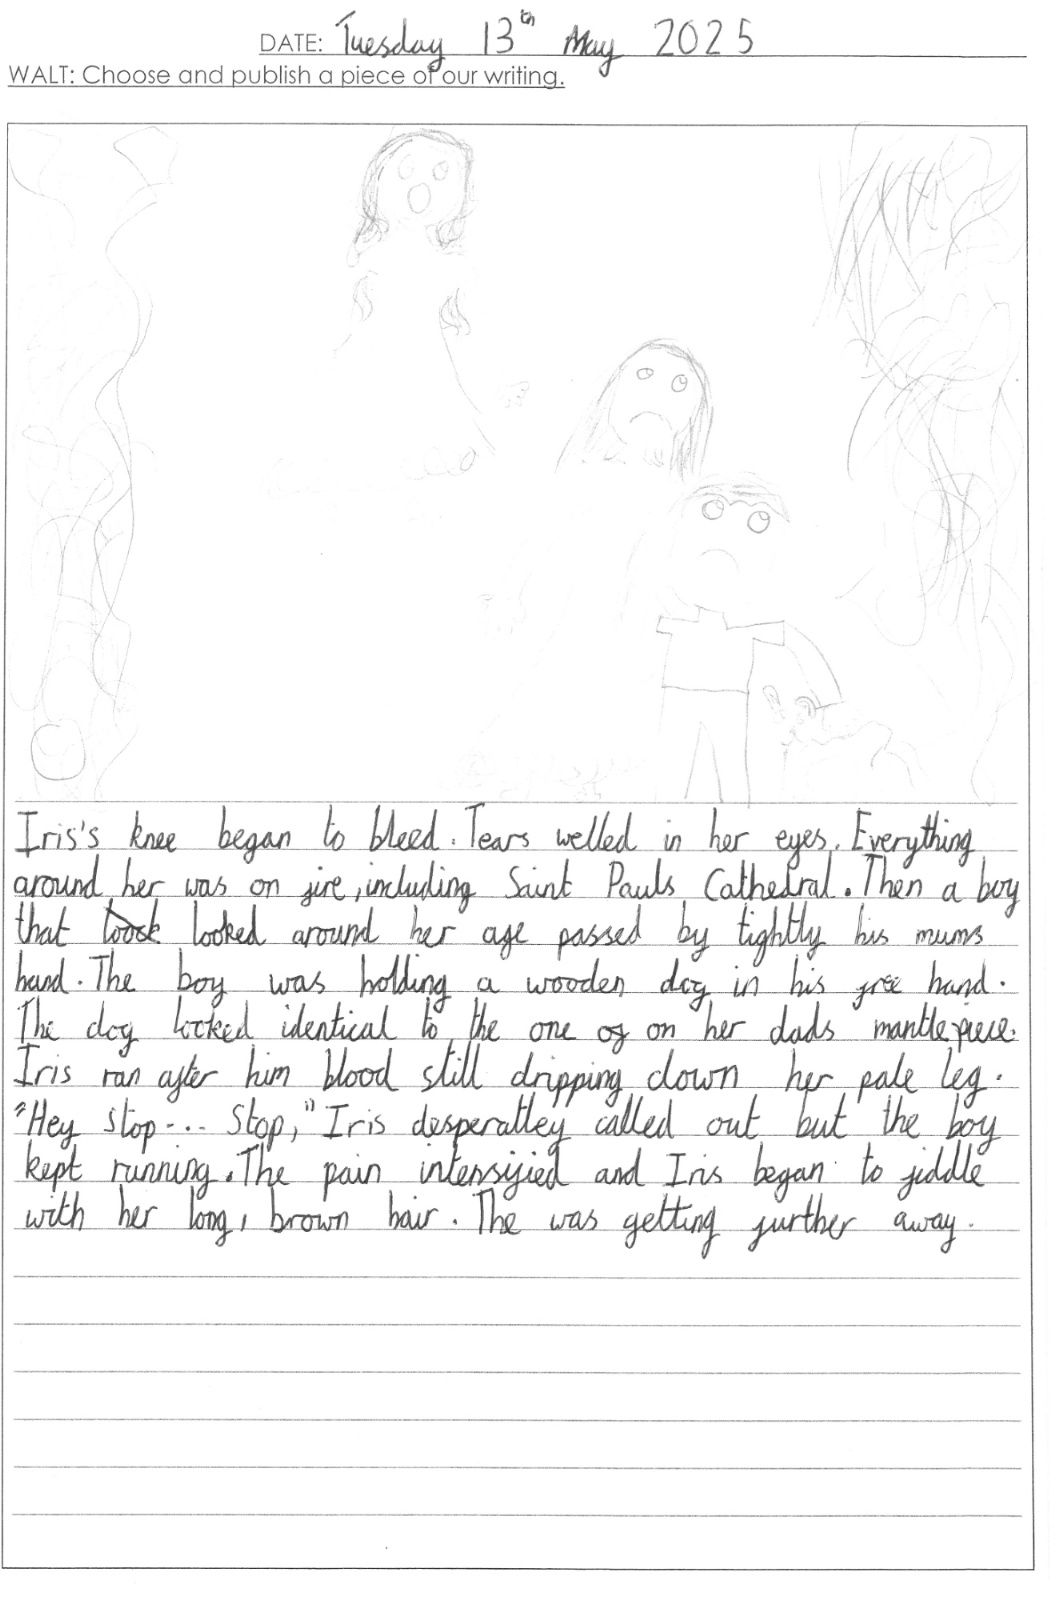 DATE: Tuesday 13th May 2025
WALT: Choose and publish a piece of our writing.
Iris's knee began to bleed. Tears welled in her eyes. Everything
around her was on fire, including Saint Pauls Cathedral. Then a boy
that looked around her age passed by tightly his mums
hand. The boy was holding a wooden dog in his free hand.
The dog looked identical to the one of on her dads mantlepiece.
Iris ran after him blood still dripping down her pale leg.
"Hey stop-... Stop," Iris desperatley called out but the boy
kept running. The pain intensified and Iris began to fiddle
with her long, brown hair. The was getting further away.